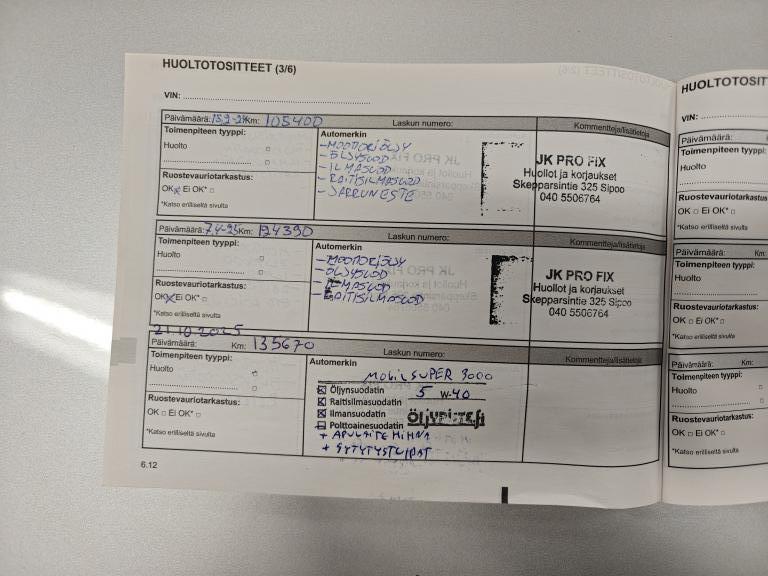 HUOLTOTOSITTEET (3/6)
VIN:
Päivämäärä: 15.2-24 Km: 105400 Laskun numero: Kommentteja/lisätietoja
Toimenpiteen tyyppi:
Huolto
Ruostevauriotarkastus:
OK Ei OK*
*Katso erilliseltä sivulta
Automerkin
-MOOTTORIÖLJY
-ÖLJYSUOD
-ILMASUOD
-RAITISILMASUOD
-JARRUNESTE
JK PRO FIX
Huollot ja korjaukset
Skepparsintie 325 Sipoo
040 5506764
Päivämäärä: 7.4-25 Km: 124390 Laskun numero: Kommentteja/lisätietoja
Toimenpiteen tyyppi:
Huolto
Ruostevauriotarkastus:
OK Ei OK*
*Katso erilliseltä sivulta
Automerkin
-MOOTTORIÖLJY
-ÖLJYSUOD
-ILMASUOD
-RAITISILMASUOD
JK PRO FIX
Huollot ja korjaukset
Skepparsintie 325 Sipoo
040 5506764
21.10.2025
Päivämäärä: Km: 135670 Laskun numero: Kommentteja/lisätietoja
Toimenpiteen tyyppi:
Huolto
Ruostevauriotarkastus:
OK Ei OK*
*Katso erilliseltä sivulta
Automerkin
MOBIL SUPER 3000
Öljynsuodatin 5 W-40
Raitisilmasuodatin
Ilmansuodatin
Polttoainesuodatin
Öljypiste.fi
+ APULAITEHIHNA
+ SYTYTYSTULPAT
6.12
HUOLTOTOSITT
VIN:
Päivämäärä:
Toimenpiteen tyyppi:
Huolto
Ruostevauriotarkastus:
OK Ei OK*
*Katso erilliseltä sivulta
Päivämäärä: Km:
Toimenpiteen tyyppi:
Huolto
Ruostevauriotarkastus:
OK Ei OK*
*Katso erilliseltä sivulta
Päivämäärä: Km:
Toimenpiteen tyyppi:
Huolto
Ruostevauriotarkastus:
OK Ei OK*
*Katso erilliseltä sivulta